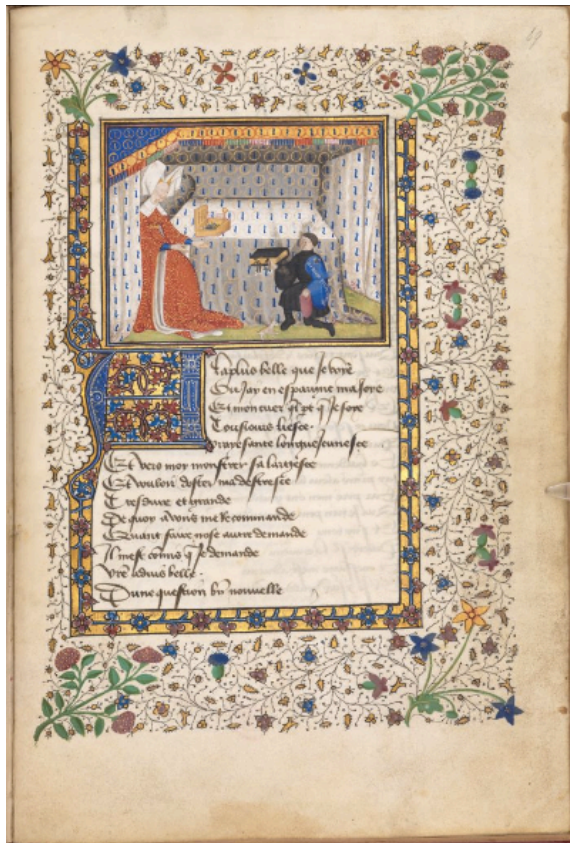 A la plus belle que Je voye
Ou Jay en esperance ma Joye
Et mon cuer
Tousiours liesce
Vraye sante longue Jeunesce
Et vers moy monstrer sa largesce
Et vouloir oster ma destresce
Tresdure et grande
De quoy a vous me Recommande
Quant faire nose autre demande
Il mest commis q Je demande
Vre aduis belle
Dune question bn nouuelle